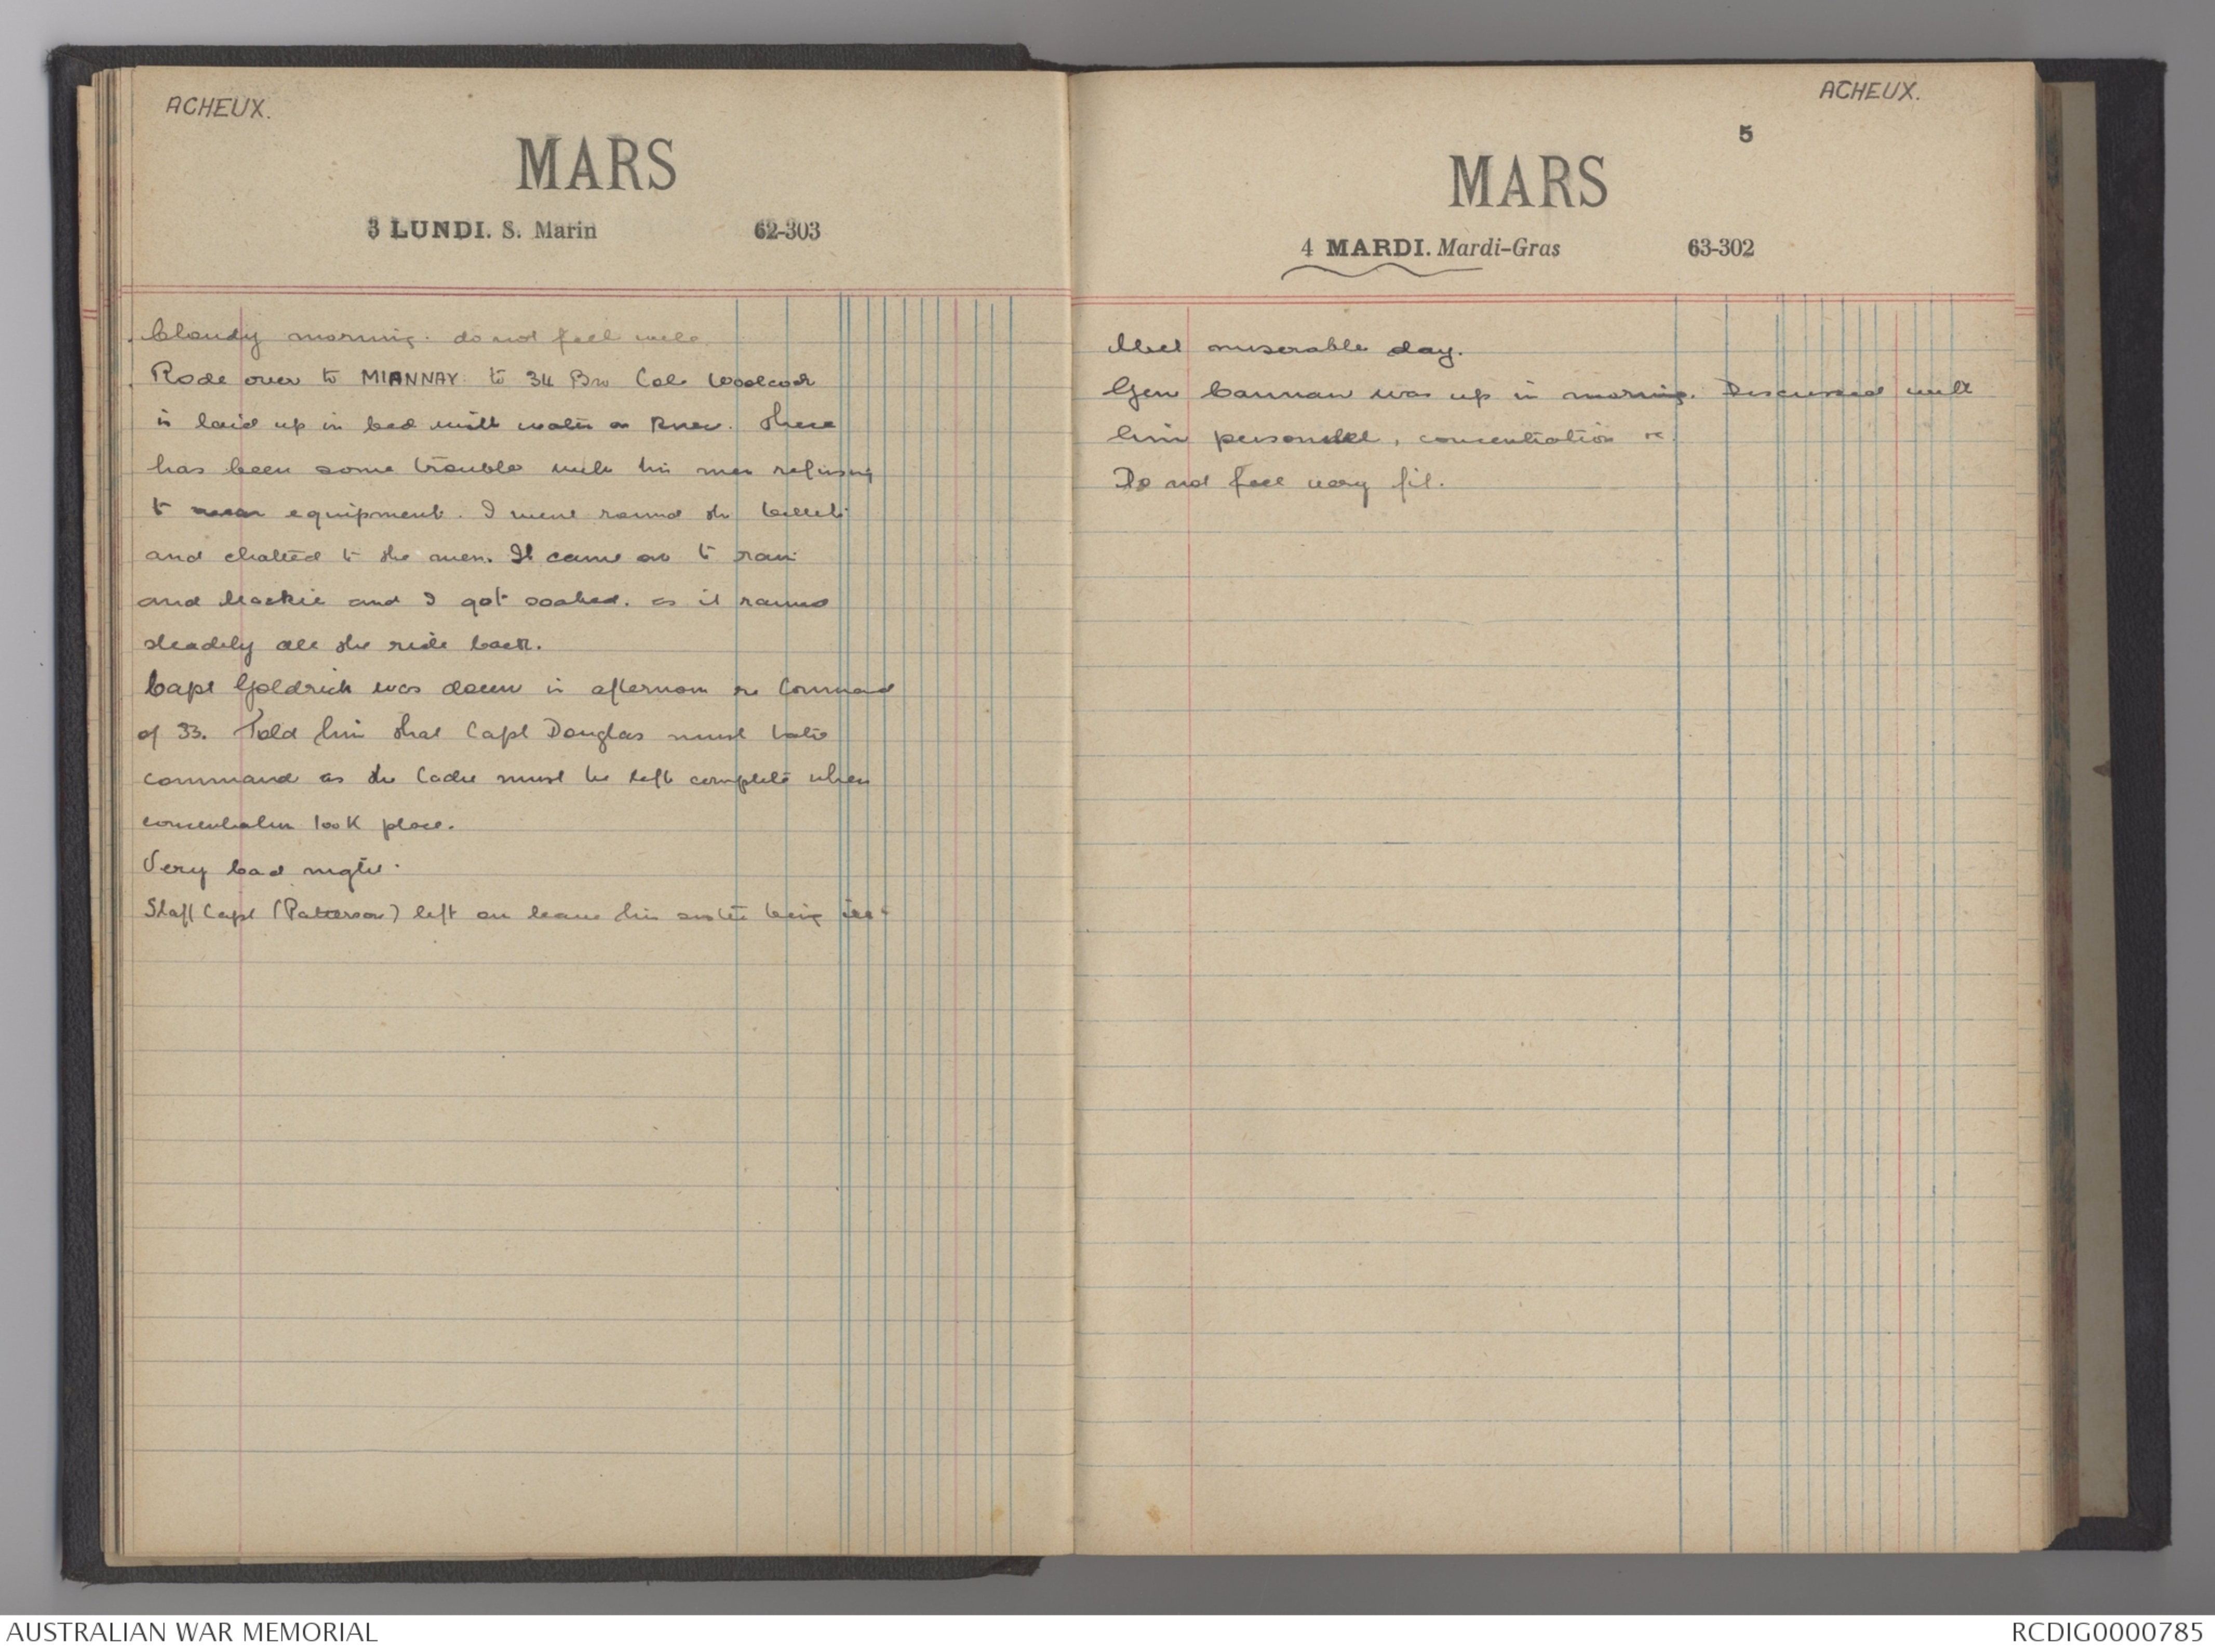 ACHEUX.
MARS
3 LUNDI. S. Marin 62-303
Cloudy morning. do not feel well.
Rode over to MIANNAY to 34 Bn Col. Woolcock
is laid up in bed with water on knee. There
has been some trouble with his men refusing
to wear equipment. I went round the billets
and chatted to the men. It came on to rain
and Mackie and I got soaked. as it rained
steadily all the ride back.
Capt Goldrick was down in afternoon re Command
of 33. Told him that Capt Douglas must take
command as the Cadre must be left complete when
concentration took place.
Very bad night.
Staff Capt (Patterson) left on leave his sister being ill
ACHEUX.
5
MARS
4 MARDI. Mardi-Gras 63-302
Wet miserable day.
Gen Cannan was up in morning. Discussed with
him personnel, concentration
Do not feel very fit.
AUSTRALIAN WAR MEMORIAL
RCDIG0000785